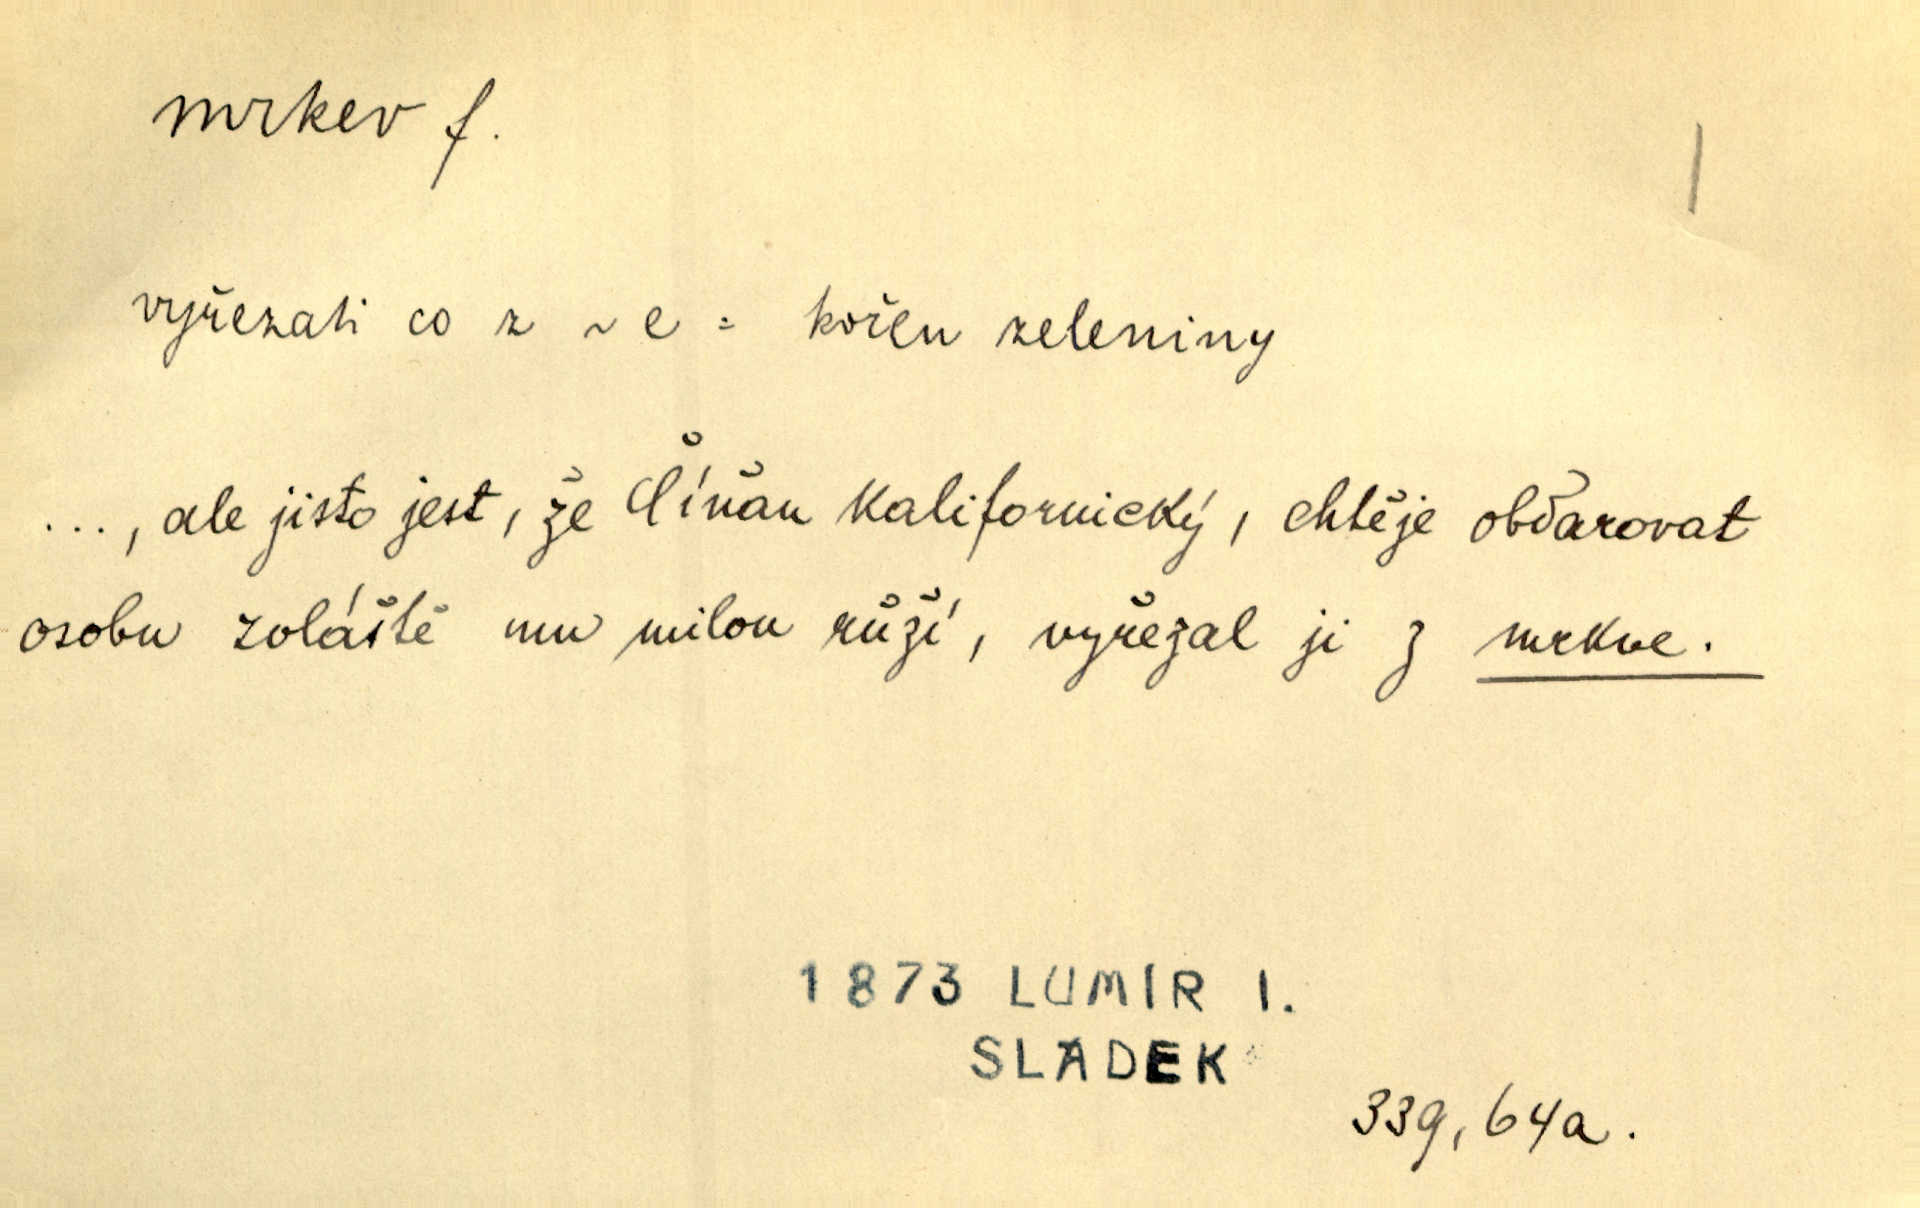 mrkev f.
vyřezati co z ~e = kořen zeleniny
..., ale jisto jest, že Číňan kalifornický, chtěje obdarovat
osobu zvláště mu milou růží, vyřezal ji z mrkve.
1873 LUMÍR I.
SLÁDEK
339, 64a.